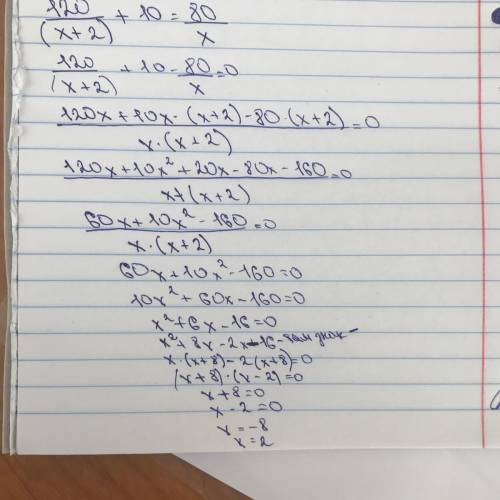 120/(x+2) + 10 = 80/x
120/(x+2) + 10 - 80/x = 0
120x + 10x · (x+2) - 80 · (x+2) / x · (x+2) = 0
120x + 10x² + 20x - 80x - 160 / x · (x+2) = 0
60x + 10x² - 160 / x · (x+2) = 0
60x + 10x² - 160 = 0
10x² + 60x - 160 = 0
x² + 6x - 16 = 0
x² + 8x - 2x - 16 - там знак -
x · (x+8) - 2(x+8) = 0
(x+8) · (x-2) = 0
x + 8 = 0
x - 2 = 0
x = -8
x = 2